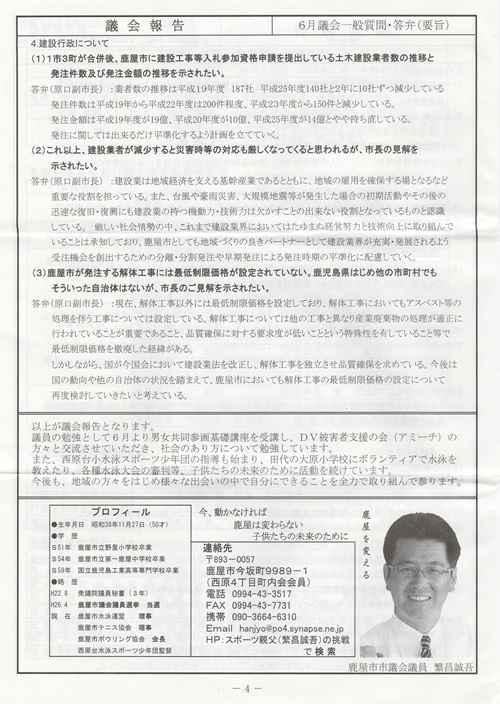 議会報告
6月議会一般質問・答弁(要旨)
4.建設行政について
(1)1市3町が合併後、鹿屋市に建設工事等入札参加資格申請を提出している土木建設業者数の推移と
発注件数及び発注金額の推移を示されたい。
答弁(原口副市長):業者数の推移は平成19年度 187社 平成25年度140社と2年に10社ずつ減少している
発注件数は平成19年から平成22年度は200件程度、平成23年度から150件と減少している。
発注金額は平成19年度が19億、平成20年度が10億、平成25年度が14億とやや持ち直している。
発注に関しては出来るだけ平準化するよう計画を立てていく。
(2)これ以上、建設業者が減少すると災害時等の対応も厳しくなってくると思われるが、市長の見解を
示されたい。
答弁(原口副市長):建設業は地域経済を支える基幹産業であるとともに、地域の雇用を確保する場となるなど
重要な役割を担っている。また、台風や豪雨災害、大規模地震等が発生した場合の初期活動やその後の
迅速な復旧・復興にも建設業の持つ機動力・技術力は欠かすことの出来ない役割となっているものと認識
している。 厳しい社会情勢の中、これまで建設業界においてはたゆまぬ経営努力と技術向上に取り組んで
いることは承知しており、鹿屋市としても地域づくりの良きパートナーとして建設業界が充実・発展されるよう
受注機会を創出するための分離・分割発注や早期発注による発注時期の平準化に配慮していく。
(3)鹿屋市が発注する解体工事には最低制限価格が設定されていない。鹿児島県はじめ他の市町村でも
そういった自治体はないが、市長のご見解を示されたい。
答弁(原口副市長):現在、解体工事以外には最低制限価格を設定しており、解体工事においてもアスベスト等の
処理を伴う工事については設定している。解体工事については他の工事と異なり産業廃棄物の処理が適正に
行われていることが重要であること、品質確保に対する要求度が低いことという特殊性を有していること等で
最低制限価格を撤廃した経緯がある。
しかしながら、国が今国会において建設業法を改正し、解体工事を独立させ品質確保を求めている。今後は
国の動向や他の自治体の状況を踏まえて、鹿屋市においても解体工事の最低制限価格の設定について
再度検討していきたいと考えている。
以上が議会報告となります。
議員の勉強として6月より男女共同参画基礎講座を受講し、DV被害者支援の会(アミーチ)の
方々と交流させていただき、社会のあり方について勉強しています。
また、西原台小水泳スポーツ少年団の指導も始まり、田代の大原小学校にボランティアで水泳を
教えたり、各種水泳大会の審判等、子供たちの未来のために活動を続けています。
今後も、地域の方々をはじめ様々な出会いの中で自分にできることを全力で取り組んで参ります。
プロフィール
●生年月日 昭和38年11月27日(50才)
●学 歴
S51年 鹿屋市立野里小学校卒業
S54年 鹿屋市立第一鹿屋中学校卒業
S59年 国立鹿児島工業高等専門学校卒業
●略 歴
H22.8 衆議院議員秘書(3年)
H26.4 鹿屋市議会議員選挙 当選
現 在 鹿屋市水泳連盟 理事
鹿屋市テニス協会 理事
鹿屋市ボウリング協会 会長
西原台水泳スポーツ少年団監督
今、動かなければ
鹿屋は変わらない
子供たちの未来のために
連絡先
〒893-0057
鹿屋市今坂町9989-1
(西原4丁目町内会会員)
電話 0994-43-3517
FAX 0994-43-7731
携帯 090-3664-6310
Email hanjyo@po4.synapse.ne.jp
HP:スポーツ親父(繁昌誠吾)の挑戦
で 検索
鹿屋を変える
鹿屋市市議会議員 繁昌誠吾
- 4 -